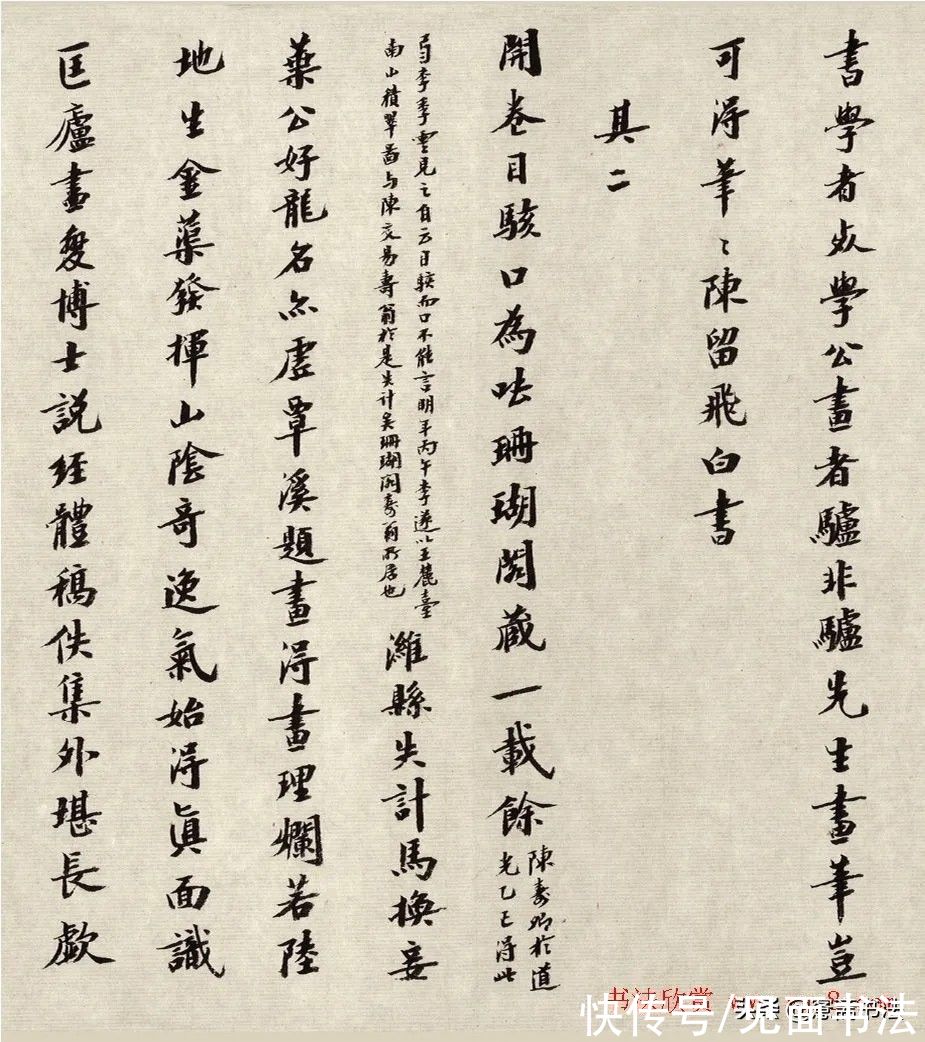 書學者必學公畫者驢非驢先生畫筆豈
可得筆〻陳留飛白書
其二
開卷目駭口為呿珊瑚閣藏一載餘
陳壽卿於道
光乙巳得此
與李季雲見之自云目駭而口不能言明年丙午李遂以王麓臺
南山積翠圖与陳交易壽翁於是失計矣珊瑚閣壽翁所居也
濰縣失計馬換妾
葉公好龍名亦虛覃溪題畫得畫理爛若陸
地生金蕖發揮山陰奇逸氣始得真面識
匡廬畫雙博士說經體稿佚集外堪長歔
书法欣赏
快传号/见面书法